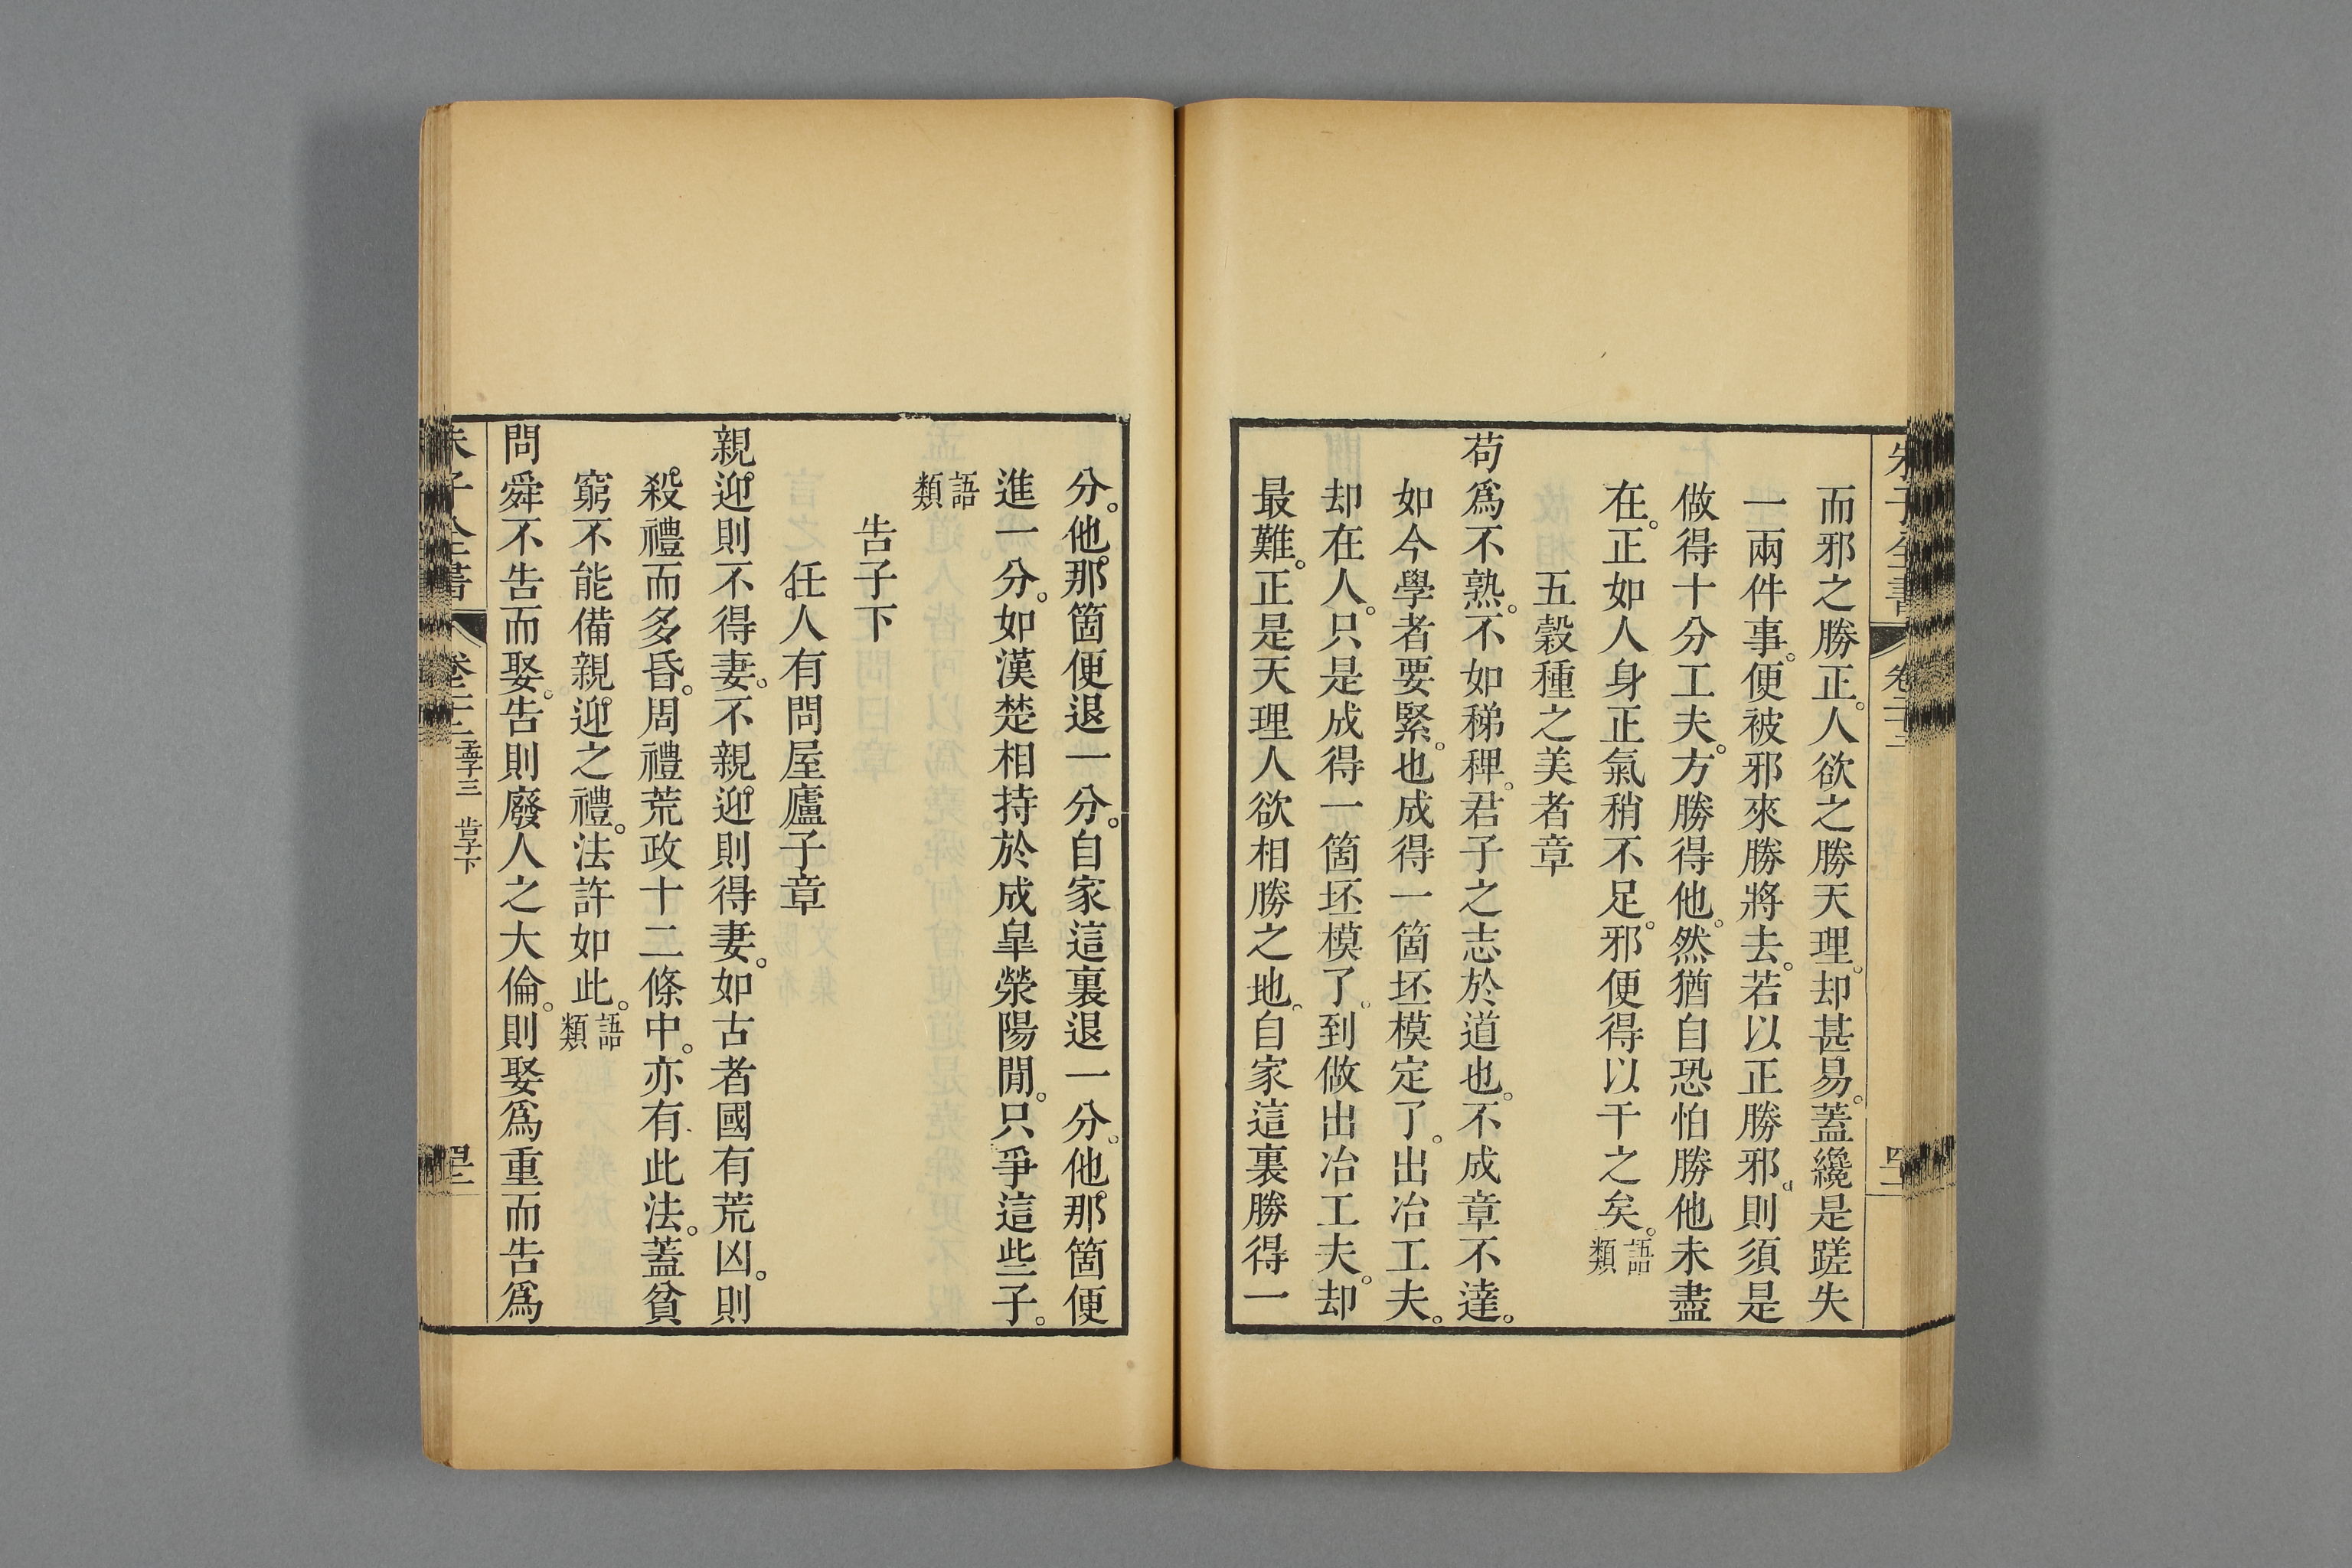 而邪之勝正。人欲之勝天理。却甚易。蓋纔是蹉失
一兩件事。便被邪來勝將去。若以正勝邪。則須是
做得十分工夫。方勝得他。然猶自恐怕勝他未盡
在。正如人身正氣稍不足。邪便得以干之矣。語類
五穀種之美者章
苟爲不熟。不如稊稗。君子之志於道也。不成章不達。
如今學者要緊。也成得一箇坯模定了。出冶工夫。
却在人。只是成得一箇坯模了。到做出冶工夫。却
最難。正是天理人欲相勝之地。自家這裏勝得一
分。他那箇便退一分。自家這裏退一分。他那箇便
進一分。如漢楚相持於成臯滎陽閒。只爭這些子。
語類
告子下
任人有問屋廬子章
親迎則不得妻。不親迎則得妻。如古者國有荒凶。則
殺禮而多昏。周禮荒政十二條中。亦有此法。蓋貧
窮不能備親迎之禮。法許如此。語類
問舜不告而娶。告則廢人之大倫。則娶爲重而告爲
朱子全書
孟子三 告子下